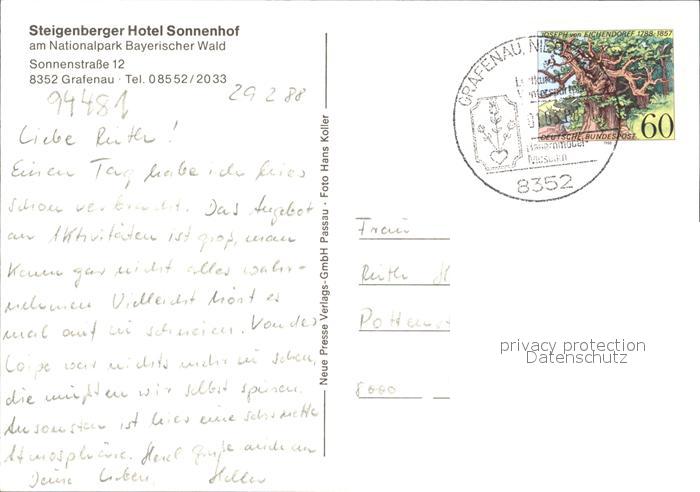 Steigenberger Hotel Sonnenhof
am Nationalpark Bayerischer Wald
Sonnenstraße 12
8352 Grafenau · Tel. 08552/2033
94481
29.2.88
Liebe Ruth!
Einen Tag habe ich hier
schon verbracht. Das Angebot
an Aktivitäten ist groß, man
kann gar nicht alles wahr-
nehmen. Vielleicht hört es
mal auf zu schneien. Von der
Loipe war nichts mehr zu sehen,
die mußten wir selbst spuren.
Ansonsten ist hier eine sehr nette
Atmosphäre. Grüße an
Deine Lieben,
Neue Presse Verlags-GmbH Passau · Foto Hans Koller
GRAFENAU,
8352
Bauernmöbel
Museum
JOSEPH von EICHENDORFF 1788-1857
DEUTSCHE BUNDESPOST
60
Frau
Ruth H
Pottenst
8000
privacy protection
Datenschutz